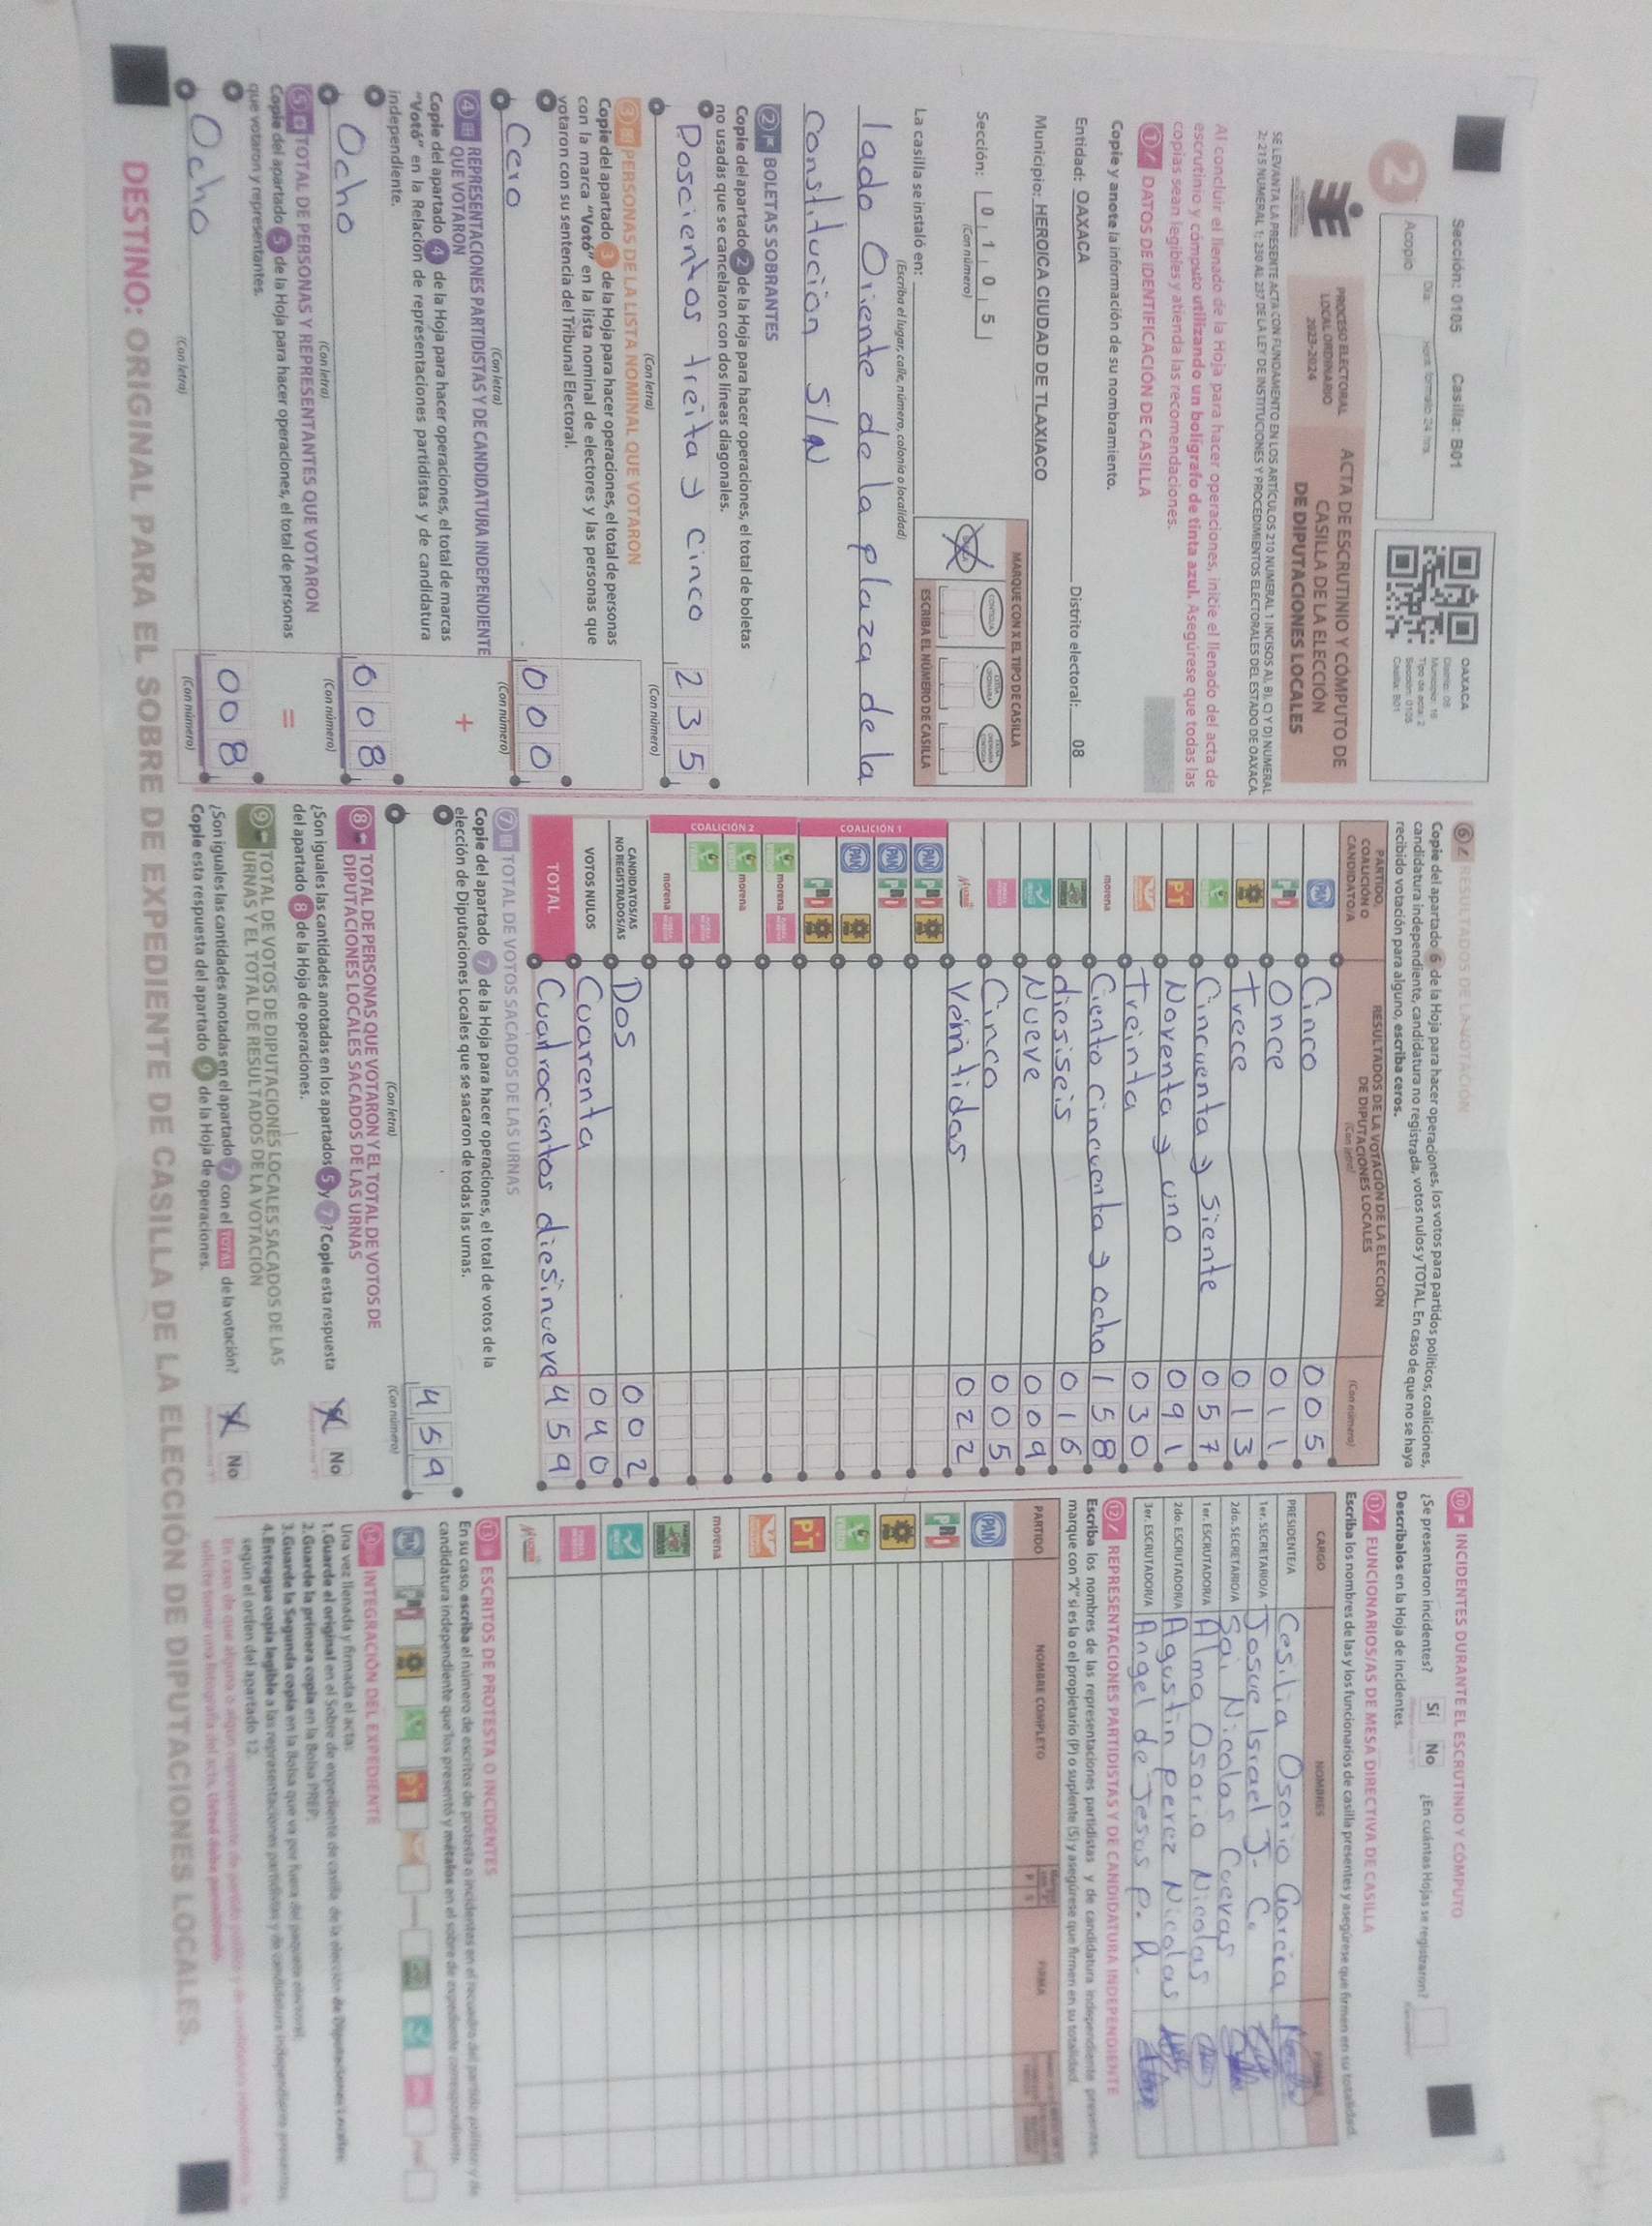 Sección: 0105 Casilla: B01
2
Acopio
Día:
Hora: formato 24 hrs.
OAXACA
Distrito: 08
Tipo de acta: 2
Sección: 0105
Casilla: B01
PROCESO ELECTORAL
LOCAL ORDINARIO
2023-2024
ACTA DE ESCRUTINIO Y CÓMPUTO DE
CASILLA DE LA ELECCIÓN
DE DIPUTACIONES LOCALES
SE LEVANTA LA PRESENTE ACTA CON FUNDAMENTO EN LOS ARTÍCULOS 210 NUMERAL 1 INCISOS A), B), C) Y D) NUMERAL
2; 215 NUMERAL 1; 230 AL 237 DE LA LEY DE INSTITUCIONES Y PROCEDIMIENTOS ELECTORALES DEL ESTADO DE OAXACA.
Al concluir el llenado de la Hoja para hacer operaciones, inicie el llenado del acta de
escrutinio y cómputo utilizando un bolígrafo de tinta azul. Asegúrese que todas las
copias sean legibles y atienda las recomendaciones.
1 DATOS DE IDENTIFICACIÓN DE CASILLA
Copie y anote la información de su nombramiento.
Entidad: OAXACA Distrito electoral: 08
Municipio: HEROICA CIUDAD DE TLAXIACO
Sección: 0 1 0 5
(Con número)
MARQUE CON X EL TIPO DE CASILLA
ESCRIBA EL NÚMERO DE CASILLA
La casilla se instaló en:
(Escriba el lugar, calle, número, colonia o localidad)
lado Oriente de la plaza de la
constitución S/N
2 BOLETAS SOBRANTES
Copie del apartado 2 de la Hoja para hacer operaciones, el total de boletas
no usadas que se cancelaron con dos líneas diagonales.
Doscientos treita y cinco 2 3 5
(Con letra) (Con número)
3 PERSONAS DE LA LISTA NOMINAL QUE VOTARON
Copie del apartado 3 de la Hoja para hacer operaciones, el total de personas
con la marca "Votó" en la lista nominal de electores y las personas que
votaron con su sentencia del Tribunal Electoral.
Cero 0 0 0
(Con letra) (Con número)
4 REPRESENTACIONES PARTIDISTAS Y DE CANDIDATURA INDEPENDIENTE
QUE VOTARON
Copie del apartado 4 de la Hoja para hacer operaciones, el total de marcas
"Votó" en la Relación de representaciones partidistas y de candidatura
independiente.
+
Ocho 0 0 8
(Con letra) (Con número)
5 TOTAL DE PERSONAS Y REPRESENTANTES QUE VOTARON
Copie del apartado 5 de la Hoja para hacer operaciones, el total de personas
que votaron y representantes.
=
Ocho 0 0 8
(Con letra) (Con número)
6 RESULTADOS DE LA VOTACIÓN
Copie del apartado 6 de la Hoja para hacer operaciones, los votos para partidos políticos, coaliciones,
candidatura independiente, candidatura no registrada, votos nulos y TOTAL. En caso de que no se haya
recibido votación para alguno, escriba ceros.
PARTIDO,
COALICIÓN O
CANDIDATO/A
RESULTADOS DE LA VOTACIÓN DE LA ELECCIÓN
DE DIPUTACIONES LOCALES
(Con letra)
(Con número)
PAN Cinco 0 0 5
PRI Once 0 1 1
Trece 0 1 3
Cincuenta y siente 0 5 7
PT Noventa y uno 0 9 1
Treinta 0 3 0
morena Ciento cincuenta y ocho 1 5 8
diesiseis 0 1 6
Nueve 0 0 9
Cinco 0 0 5
Veintidos 0 2 2
COALICIÓN 1
PAN PRI
PAN PRI
PAN
PRI
COALICIÓN 2
morena
morena
morena
CANDIDATOS/AS
NO REGISTRADOS/AS Dos 0 0 2
VOTOS NULOS Cuarenta 0 4 0
TOTAL Cuatrocientos diesinueve 4 5 9
7 TOTAL DE VOTOS SACADOS DE LAS URNAS
Copie del apartado 7 de la Hoja para hacer operaciones, el total de votos de la
elección de Diputaciones Locales que se sacaron de todas las urnas.
4 5 9
(Con letra) (Con número)
8 TOTAL DE PERSONAS QUE VOTARON Y EL TOTAL DE VOTOS DE
DIPUTACIONES LOCALES SACADOS DE LAS URNAS
¿Son iguales las cantidades anotadas en los apartados 5 y 7? Copie esta respuesta
del apartado 8 de la Hoja de operaciones.
No
9 TOTAL DE VOTOS DE DIPUTACIONES LOCALES SACADOS DE LAS
URNAS Y EL TOTAL DE RESULTADOS DE LA VOTACIÓN
¿Son iguales las cantidades anotadas en el apartado 7 con el TOTAL de la votación?
Copie esta respuesta del apartado 9 de la Hoja de operaciones.
No
10 INCIDENTES DURANTE EL ESCRUTINIO Y CÓMPUTO
¿Se presentaron incidentes? Sí No ¿En cuántas Hojas se registraron?
Descríbalos en la Hoja de incidentes.
11 FUNCIONARIOS/AS DE MESA DIRECTIVA DE CASILLA
Escriba los nombres de las y los funcionarios de casilla presentes y asegúrese que firmen en su totalidad.
CARGO NOMBRES FIRMAS
PRESIDENTE/A Cesilia Osorio Garcia
1er. SECRETARIO/A Josue Israel J. C.
2do. SECRETARIO/A Sai Nicolas Cuevas
1er. ESCRUTADOR/A Alma Osorio Nicolas
2do. ESCRUTADOR/A Agustin perez Nicolas
3er. ESCRUTADOR/A Angel de Jesus P. R.
12 REPRESENTACIONES PARTIDISTAS Y DE CANDIDATURA INDEPENDIENTE
Escriba los nombres de las representaciones partidistas y de candidatura independiente presentes,
marque con "X" si es la o el propietario (P) o suplente (S) y asegúrese que firmen en su totalidad.
PARTIDO NOMBRE COMPLETO P S FIRMA
PAN
PRI
PT
morena
13 ESCRITOS DE PROTESTA O INCIDENTES
En su caso, escriba el número de escritos de protesta o incidentes en el recuadro del partido político y de
candidatura independiente que los presentó y métalos en el sobre de expediente correspondiente.
PAN PRI PT
14 INTEGRACIÓN DEL EXPEDIENTE
Una vez llenada y firmada el acta:
1.Guarde el original en el Sobre de expediente de casilla de la elección de Diputaciones Locales.
2.Guarde la primera copia en la Bolsa PREP.
3.Guarde la Segunda copia en la Bolsa que va por fuera del paquete electoral.
4.Entregue copia legible a las representaciones partidistas y de candidatura independiente presentes,
según el orden del apartado 12.
En caso de que alguna o algún representante de partido político y de candidatura independiente, le
solicite tomar una fotografía del acta, usted debe permitirlo.
DESTINO: ORIGINAL PARA EL SOBRE DE EXPEDIENTE DE CASILLA DE LA ELECCIÓN DE DIPUTACIONES LOCALES.